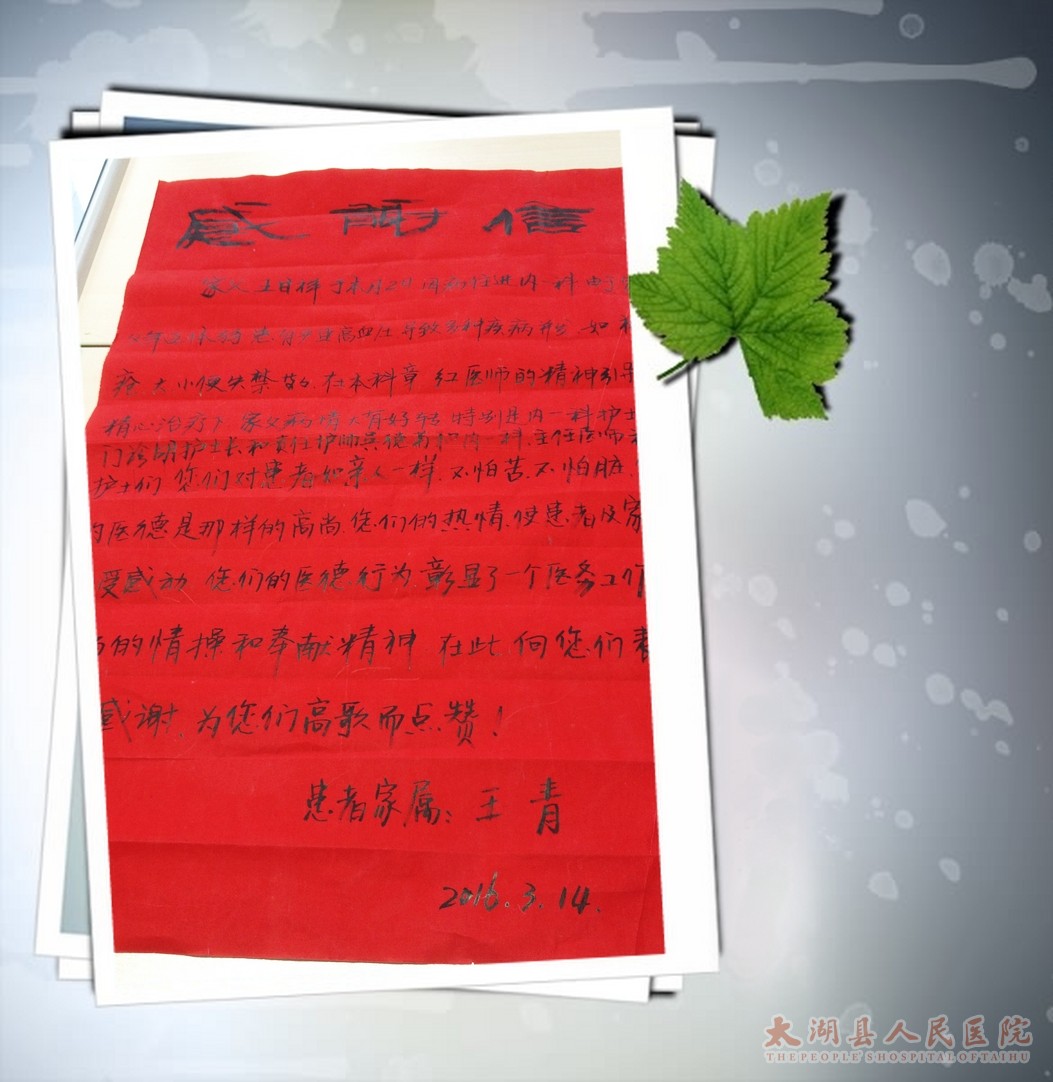 感谢信
家父王日祥于本月20日因病住进内一科由于
患有多年高血压导致多种疾病形成 如
疮 大小便失禁等 在本科章 红医师的精神引导
精心治疗下 家父病情大有好转 特别是内一科护士
门诊部护士长和责任护师 内一科 主任医师
护士们 您们对患者如亲人一样 不怕苦 不怕脏
的医德是那样的高尚 您们的热情使患者及家
受感动 您们的医德 行为 彰显了一个医务工作
的情操和奉献精神 在此 向您们表
感谢 为您们高歌而点赞！
患者家属：王 青
2016.3.14.
太湖县人民医院
THE PEOPLE'S HOSPITAL OF TAIHU